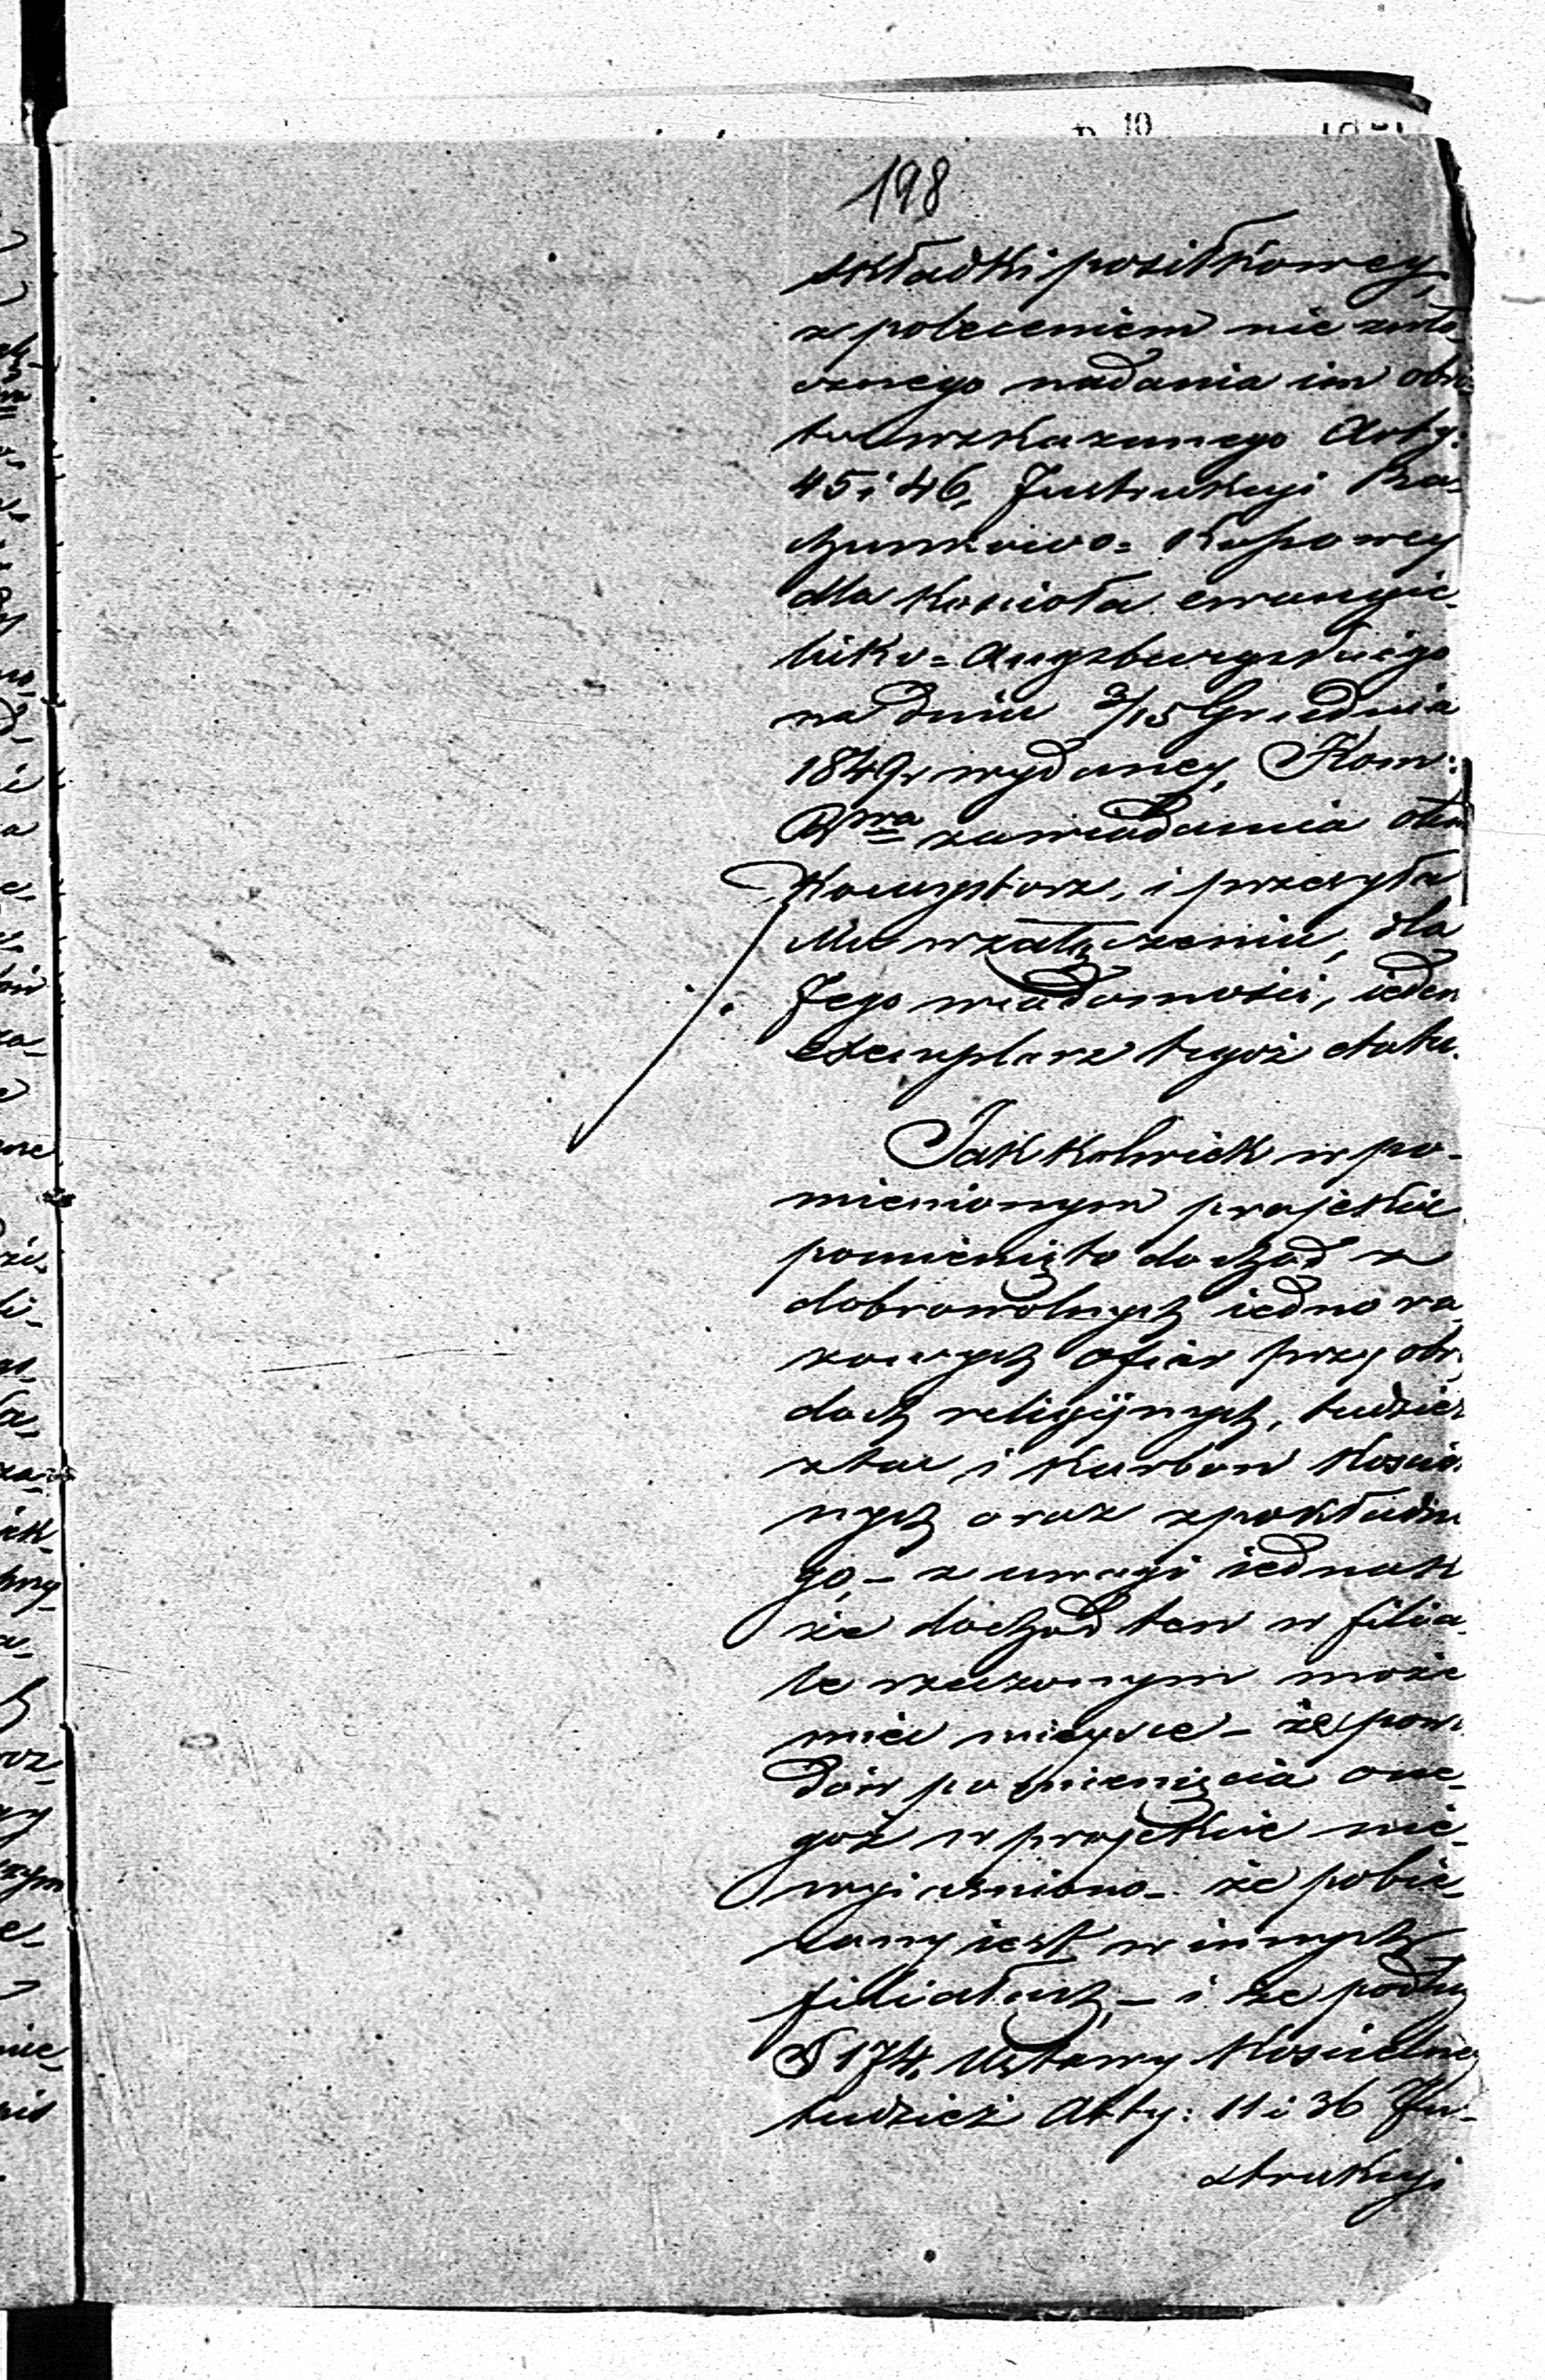 198
składki posiłkowey,
z poleceniem niezwło_
cznego nadania im obro=
tu wskazanego Arty:
45 i 46, Instrukcyi Ra=
chunkowo=Kassowey
dla Kościoła ewangie_
licko=Augsburgskiego
na dniu 3/15 Grudnia
1849 r wydaney, Kom:
Rwa zawiadamia o tem
Konsystorz, i przesyła
Mu w załączeniu, dla
Jego wiadomości, ieden
exemplarz tegoż etatu.
Jakkolwiek w po_
mienionym projekcie
pominięto dochód z
dobrowolnych iedno ra
zowych ofiar przy obrz
dach religijnych, tudzież
z tac, i karbon Kościel
nych oraz z pokładne
go, _ z uwagi iednak
że dochód ten w filia_
le rzeczonym może
mieć mieysce _ że powo
dów pominięcia one_
goż w projekcie nie_
wyiaśniono _ że pobie_
rany iest w innych
filiałach, _ i że podług
§ 174, Ustawy Kościelney
tudzież Arty: 11 i 36 In_
strukcyi